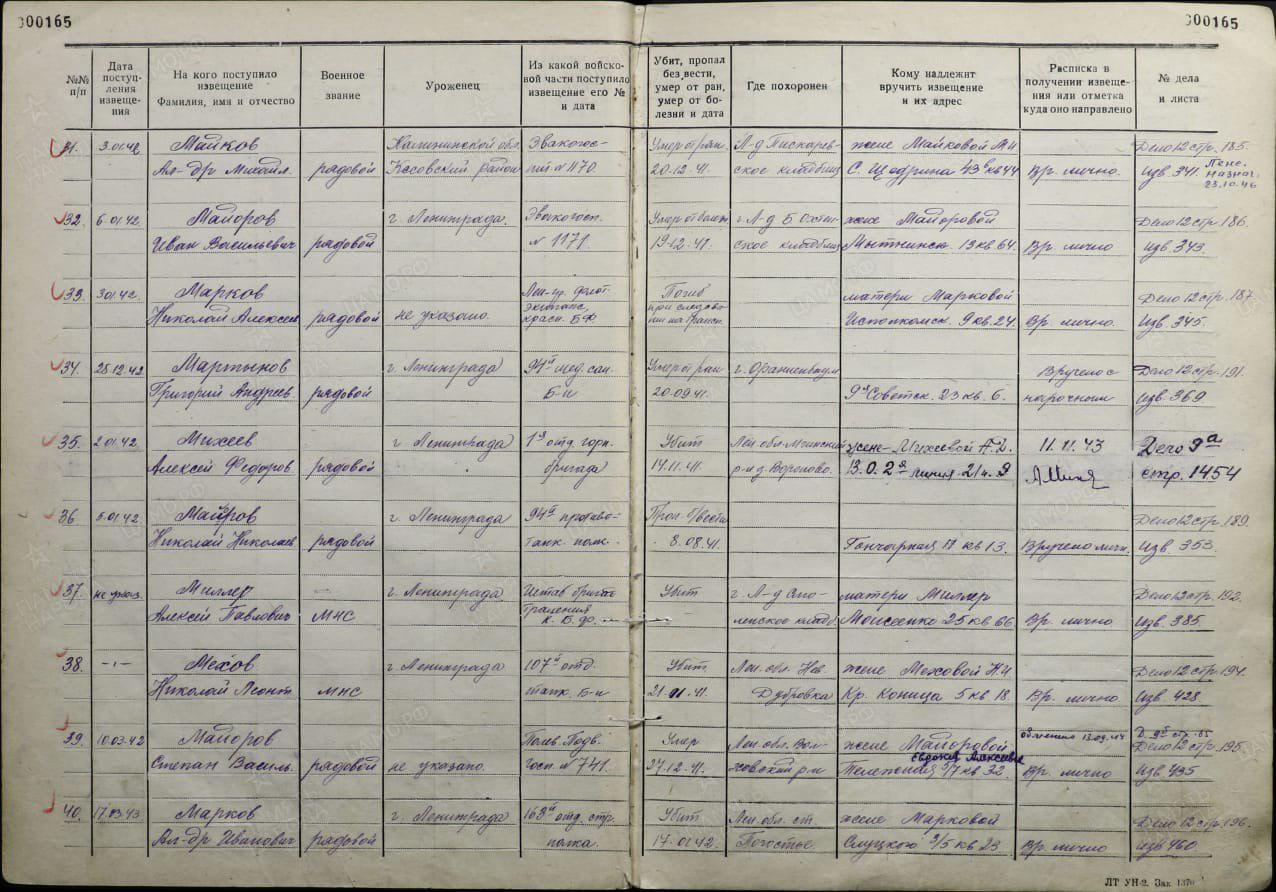 000165
000165
№№ п/п
Дата поступ- ления извеще- ния
На кого поступило извещение Фамилия, имя и отчество
Военное звание
Уроженец
Из какой войско- вой части поступило извещение его № и дата
Убит, пропал без вести, умер от ран, умер от бо- лезни и дата
Где похоронен
Кому надлежит вручить извещение и их адрес
Расписка в получении извеще- ния или отметка куда оно направлено
№ дела и листа
31. 3.01.42 Майков Калининской обл. Эвакогос- Умер от ран. Л-д Пискарев- жене Майковой М И Дело 12 стр. 185.
Ал-др Михайл. рядовой Кесовский район питл №1170. 20.12.41. ское кладбище С. Щедрина 43 кв 44 Вр. лично. Изв. 341. Пенс. Назнач. 23.10.46
32. 6.01.42. Майоров г. Ленинграда. Эвакогосп. г. Л-д Б Охтен- жене Майоровой Дело 12 стр. 186.
Иван Васильевич рядовой № 1171. 19.12.41. ское кладбище Мытнинск. 13 кв. 64 Вр. лично Изв. 343.
33. 3.01.42. Марков Погиб матери Марковой Дело 12 стр. 187.
Николай Алексеев рядовой не указано. красн. Б.Ф. Исполкомск. 9 кв. 24 Вр. лично. Изв. 345.
34. 25.12.42 Мартынов г. Ленинграда 94й мед. сан. Умер от ран г. Ораниенбаум Вручено с Дело 12 стр. 191.
Григорий Андреев. рядовой Б-н 20.09.41. 9я Советск. 23 кв. 6. нарочным Изв. 369
35. 2.01.42. Михеев г Ленинграда 1я отд. горн. Убит Лен. обл. Мгинский жене-Михеевой А.Д. 11.11.43 Дело 9а
Алексей Федоров рядовой бригада 14.11.41. р-н д. Вороново. В.О. 2я линия стр. 1454
36 5.01.42. Майоров г. Ленинграда 94й противо- Дело 12 стр. 189.
Николай Николаев рядовой танк. полк. 8.08.41. Гончарная кв 13. Вручено личн. Изв. 353
37. не указ. Миллер г. Ленинграда Убит г. Л-д Смо- матери Миллер Дело 12 стр. 192.
Алексей Павлович МНС Траления К. Б.Ф. ленское кладб. Моисеенко 25 кв 66 Вр. лично Изв. 385.
38. -"- Мехов г. Ленинграда 107й отд. Убит Лен. обл. Нев. жене Меховой Дело 12 стр. 194.
Николай Леонт МНС танк. Б-н 21.11.41. Дубровка Кр. Конница 5 кв 18. Вр. лично. Изв. 428
39. 10.03.42 Майоров Полев. Подв. Умер Лен. обл. Вол- жене Майоровой Евдокия Алексеевна 13.09.44 Дело 12 стр. 195.
Степан Василь. рядовой не указано. Госп. № 741. 27.12.41. ховский р-н Тележная кв 32. Вр. лично Изв. 435
40. 17.03.43 Марков г. Ленинграда 168й отд. стр. Убит Лен. обл. ст. жене Марковой Дело 12 стр. 196.
Ал-др Иванович рядовой полка. 17.01.42. Погостье. Слуцкого 3/5 кв 23 Вр. лично Изв 460
ЛТ УН-2. Зак. 1370